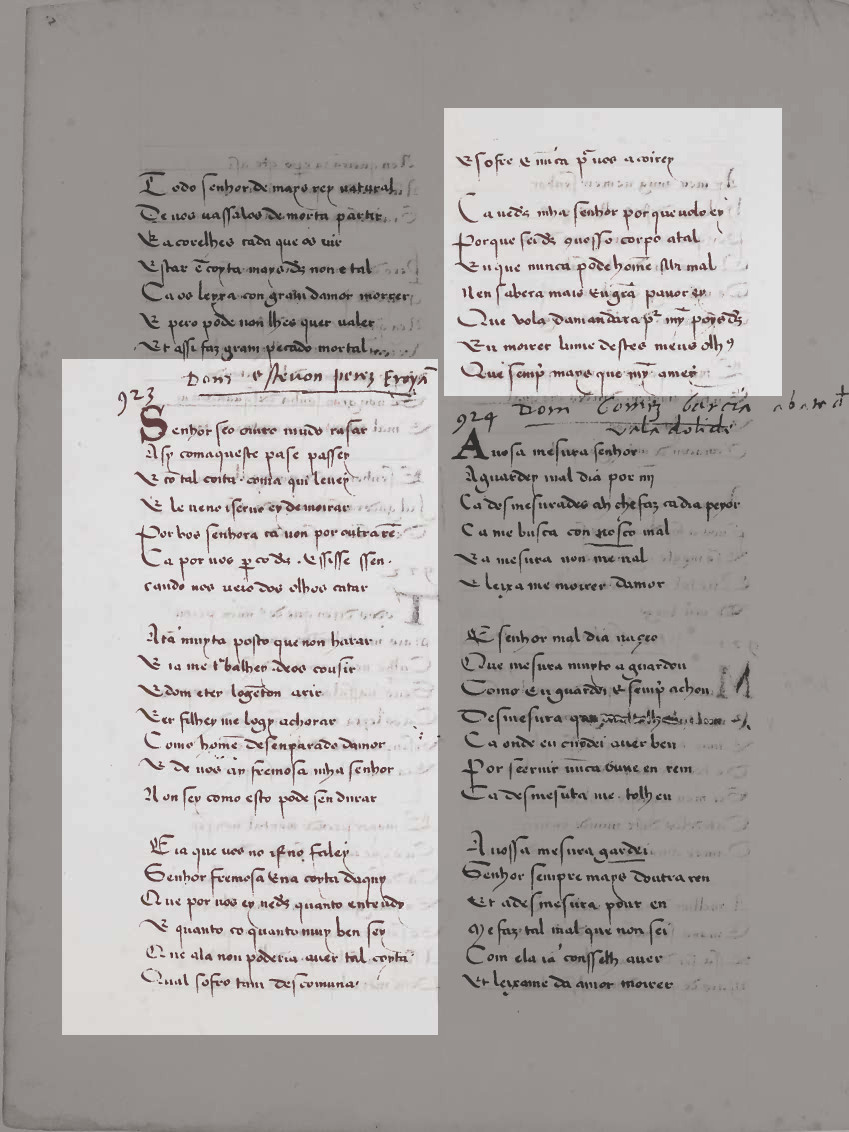 Todo senhor de mays rey natural
De vos vassalos de morta partir
E acorelhes cada que os vir
Estar ē coyta mays d̄s non e tal
Ca os leyxa con gram damor morrer
E pero pode non lhes quer valer
Et assi faz gram pecado mortal
923 Dom Stevon perez Froyā
Senhor seo outro mudo rasar
Assy comaqueste pasepassey
E cō tal coita coma qui levey
E le veno iferno ey de morar
Por vos senhora ca non por outra rē
Ca por vos
cando nos veio dos olhos catar
A tā muyta posto que non harar
E ia me trabalhey deos cousir
E dom eter
Ver filhey me logo a chorar
Como homē desenparado damor
E de vos fremosa mha senhor
Non sey como esto pode sen durar
E ia que vos no
Senhor fremosa ena coyta daquy
Que por vos ey ved̄s quanto entendy
E quanto co quanto muy ben sey
Que ala non poderia aver tal coyta
Qual sofro tam descomuna
E sofre e nūca por vos a coirey
Ca ved̄s mha senhor por que volo ey
Por que sei d̄s vosso corpo atal
En que nunca pode homē mal
Nen sabera mais en grā pavor ey
Que vola demandara por my poys d̄s
En moirer lume destes meus olhos
Que semp̄ mays que my amey
924 Dom Gomez Garcia abade d
Valadolide
A vosa mesura senhor
Aguardey mal dia por mī
Ca desmesurades
Ca me busca con vosco mal
E a mesura non me val
E leixa me moirer damor
E senhor mal dia naçeo
Que mesura muyto aguardou
Como eu guardei e semp̄ achou
Desmesura
Ca onde eu cuidei aver ben
Por servir nūca ouve en rem
Ca desmesura me tolh eu
A vossa mesura gardei
Senhor sempre mays doutra ren
Et a desmesura por en
Me faz tal mal que non sei
Com ela ia consselh aver
Et leixame da amor moirer